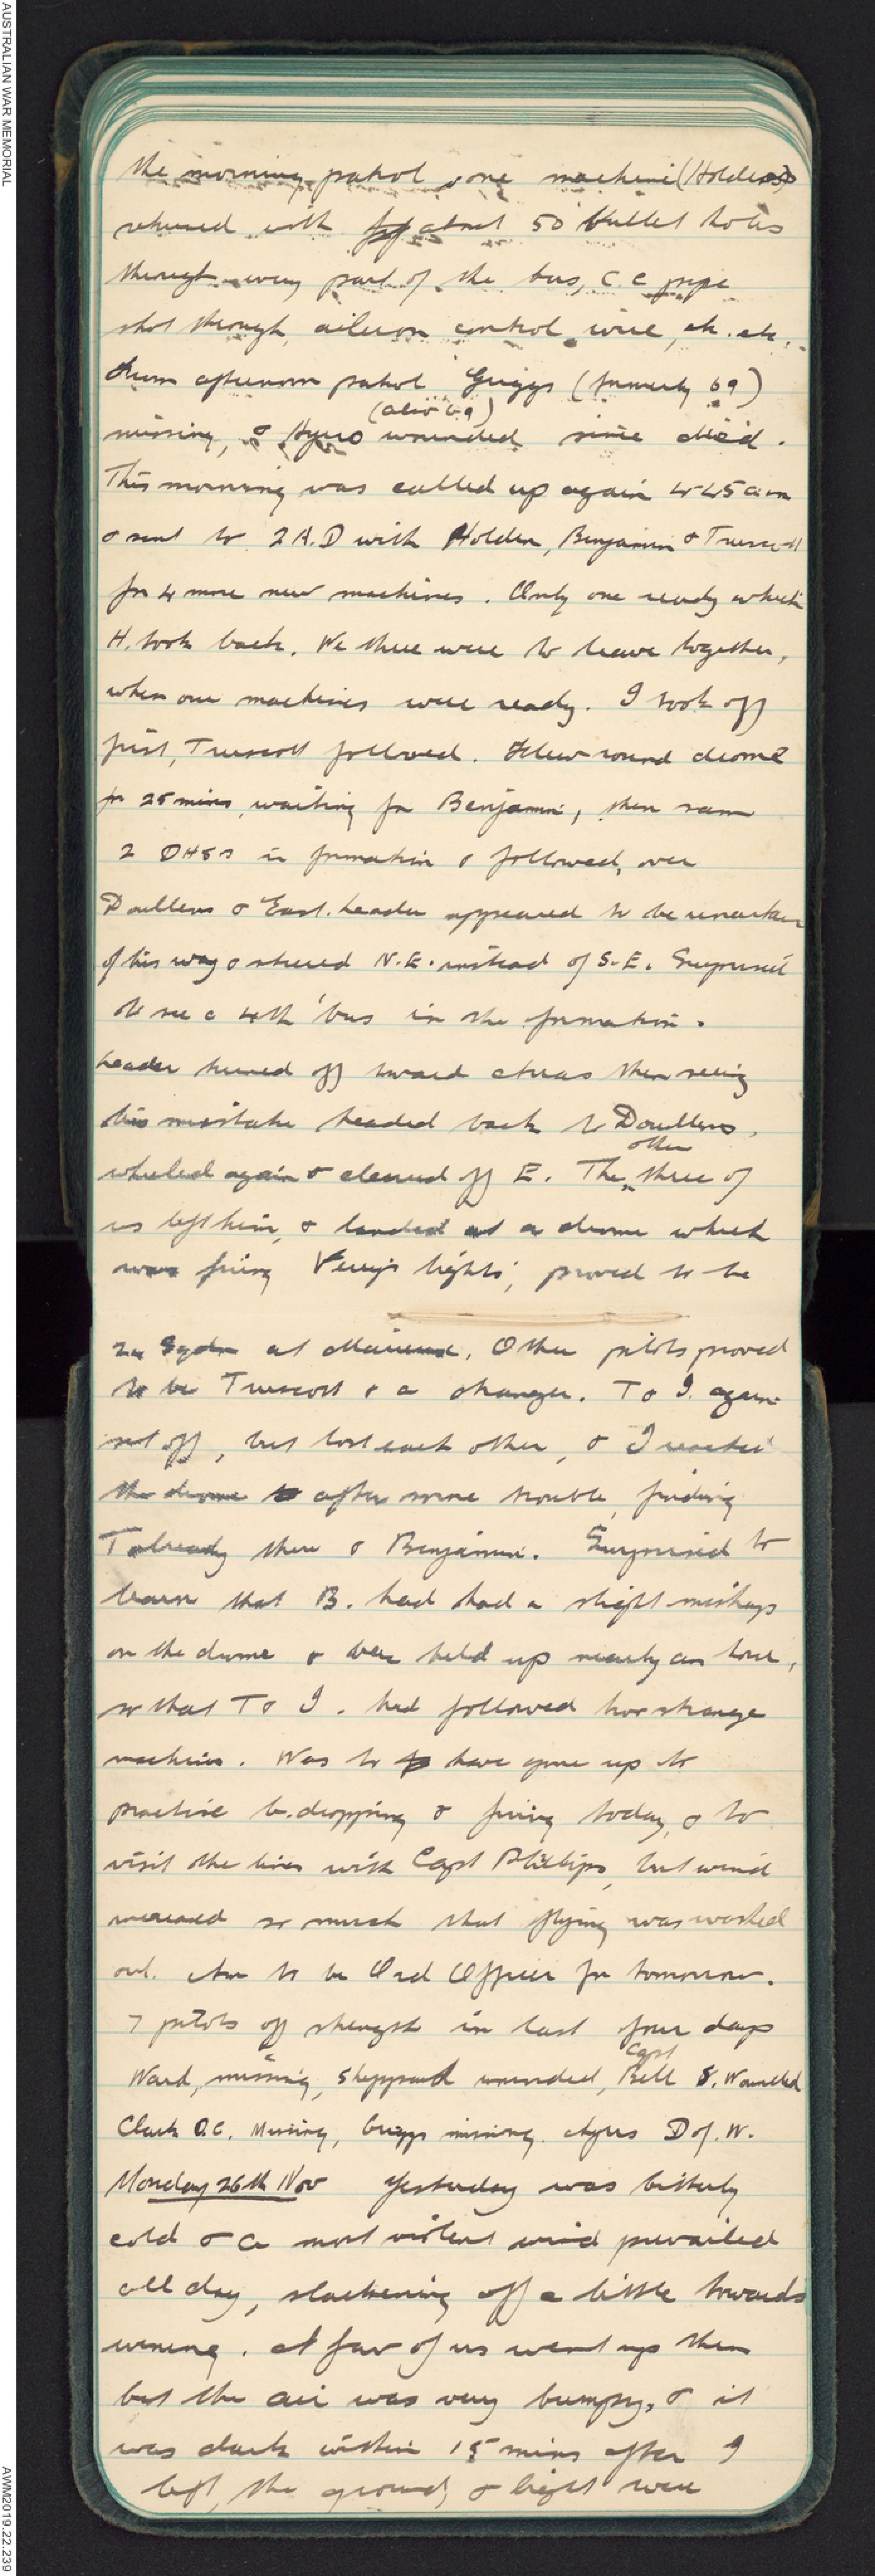 AUSTRALIAN WAR MEMORIAL
the morning patrol & one machine (Holden's)
returned with about 50 bullet holes
through every part of the bus, C.C pipe
shot through, aileron control wire, etc. etc.
From afternoon patrol Griggs (formerly 69)
(also 69)
missing, & Ayers wounded since died.
This morning was called up again 4-45 am
& sent to 2 A.D with Holden, Benjamin & Truscott
for 4 more new machines. Only one ready which
H. took back. We three were to leave together,
when our machines were ready. I took off
first, Truscott followed. Flew round drome
for 25 mins, waiting for Benjamin, then saw
2 DH5s in formation & followed, over
Doullens & East. Leader appeared to be uncertain
of his way & steered N.E. instead of S.E. Surprised
to see a 4th 'bus in the formation.
Leader turned off toward Arras then seeing
his mistake headed back to Doullens,
other
wheeled again & cleared off E. The three of
us left him, & landed at a drome which
was firing Verey's lights, proved to be
at. Other pilots proved
to be Truscott & a stranger. T & I. again
set off, but lost each other, & I reached
the drome after some trouble, finding
T already there & Benjamin. Surprised to
learn that B. had had a slight mishap
on the drome & been held up nearly an hour,
so that T & I. had followed two strange
machines. Was to have gone up to
practise b.dropping & firing today, & to
visit the lines with Capt Phillips, but wind
increased so much that flying was washed
out. Am to be Ord Officer for tomorrow.
7 pilots off strength in last four days
Capt
Ward, missing, Sheppard wounded, Bell S. Wounded
Clark O.C. Missing, Griggs missing. Ayers D of. W.
Monday 26th Nov Yesterday was bitterly
cold & a most violent wind prevailed
all day, slackening off a little towards
evening. A few of us went up then
but the air was very bumpy, & it
was dark within 15 mins after I
left the ground, & lights were
AWM2019.22.239